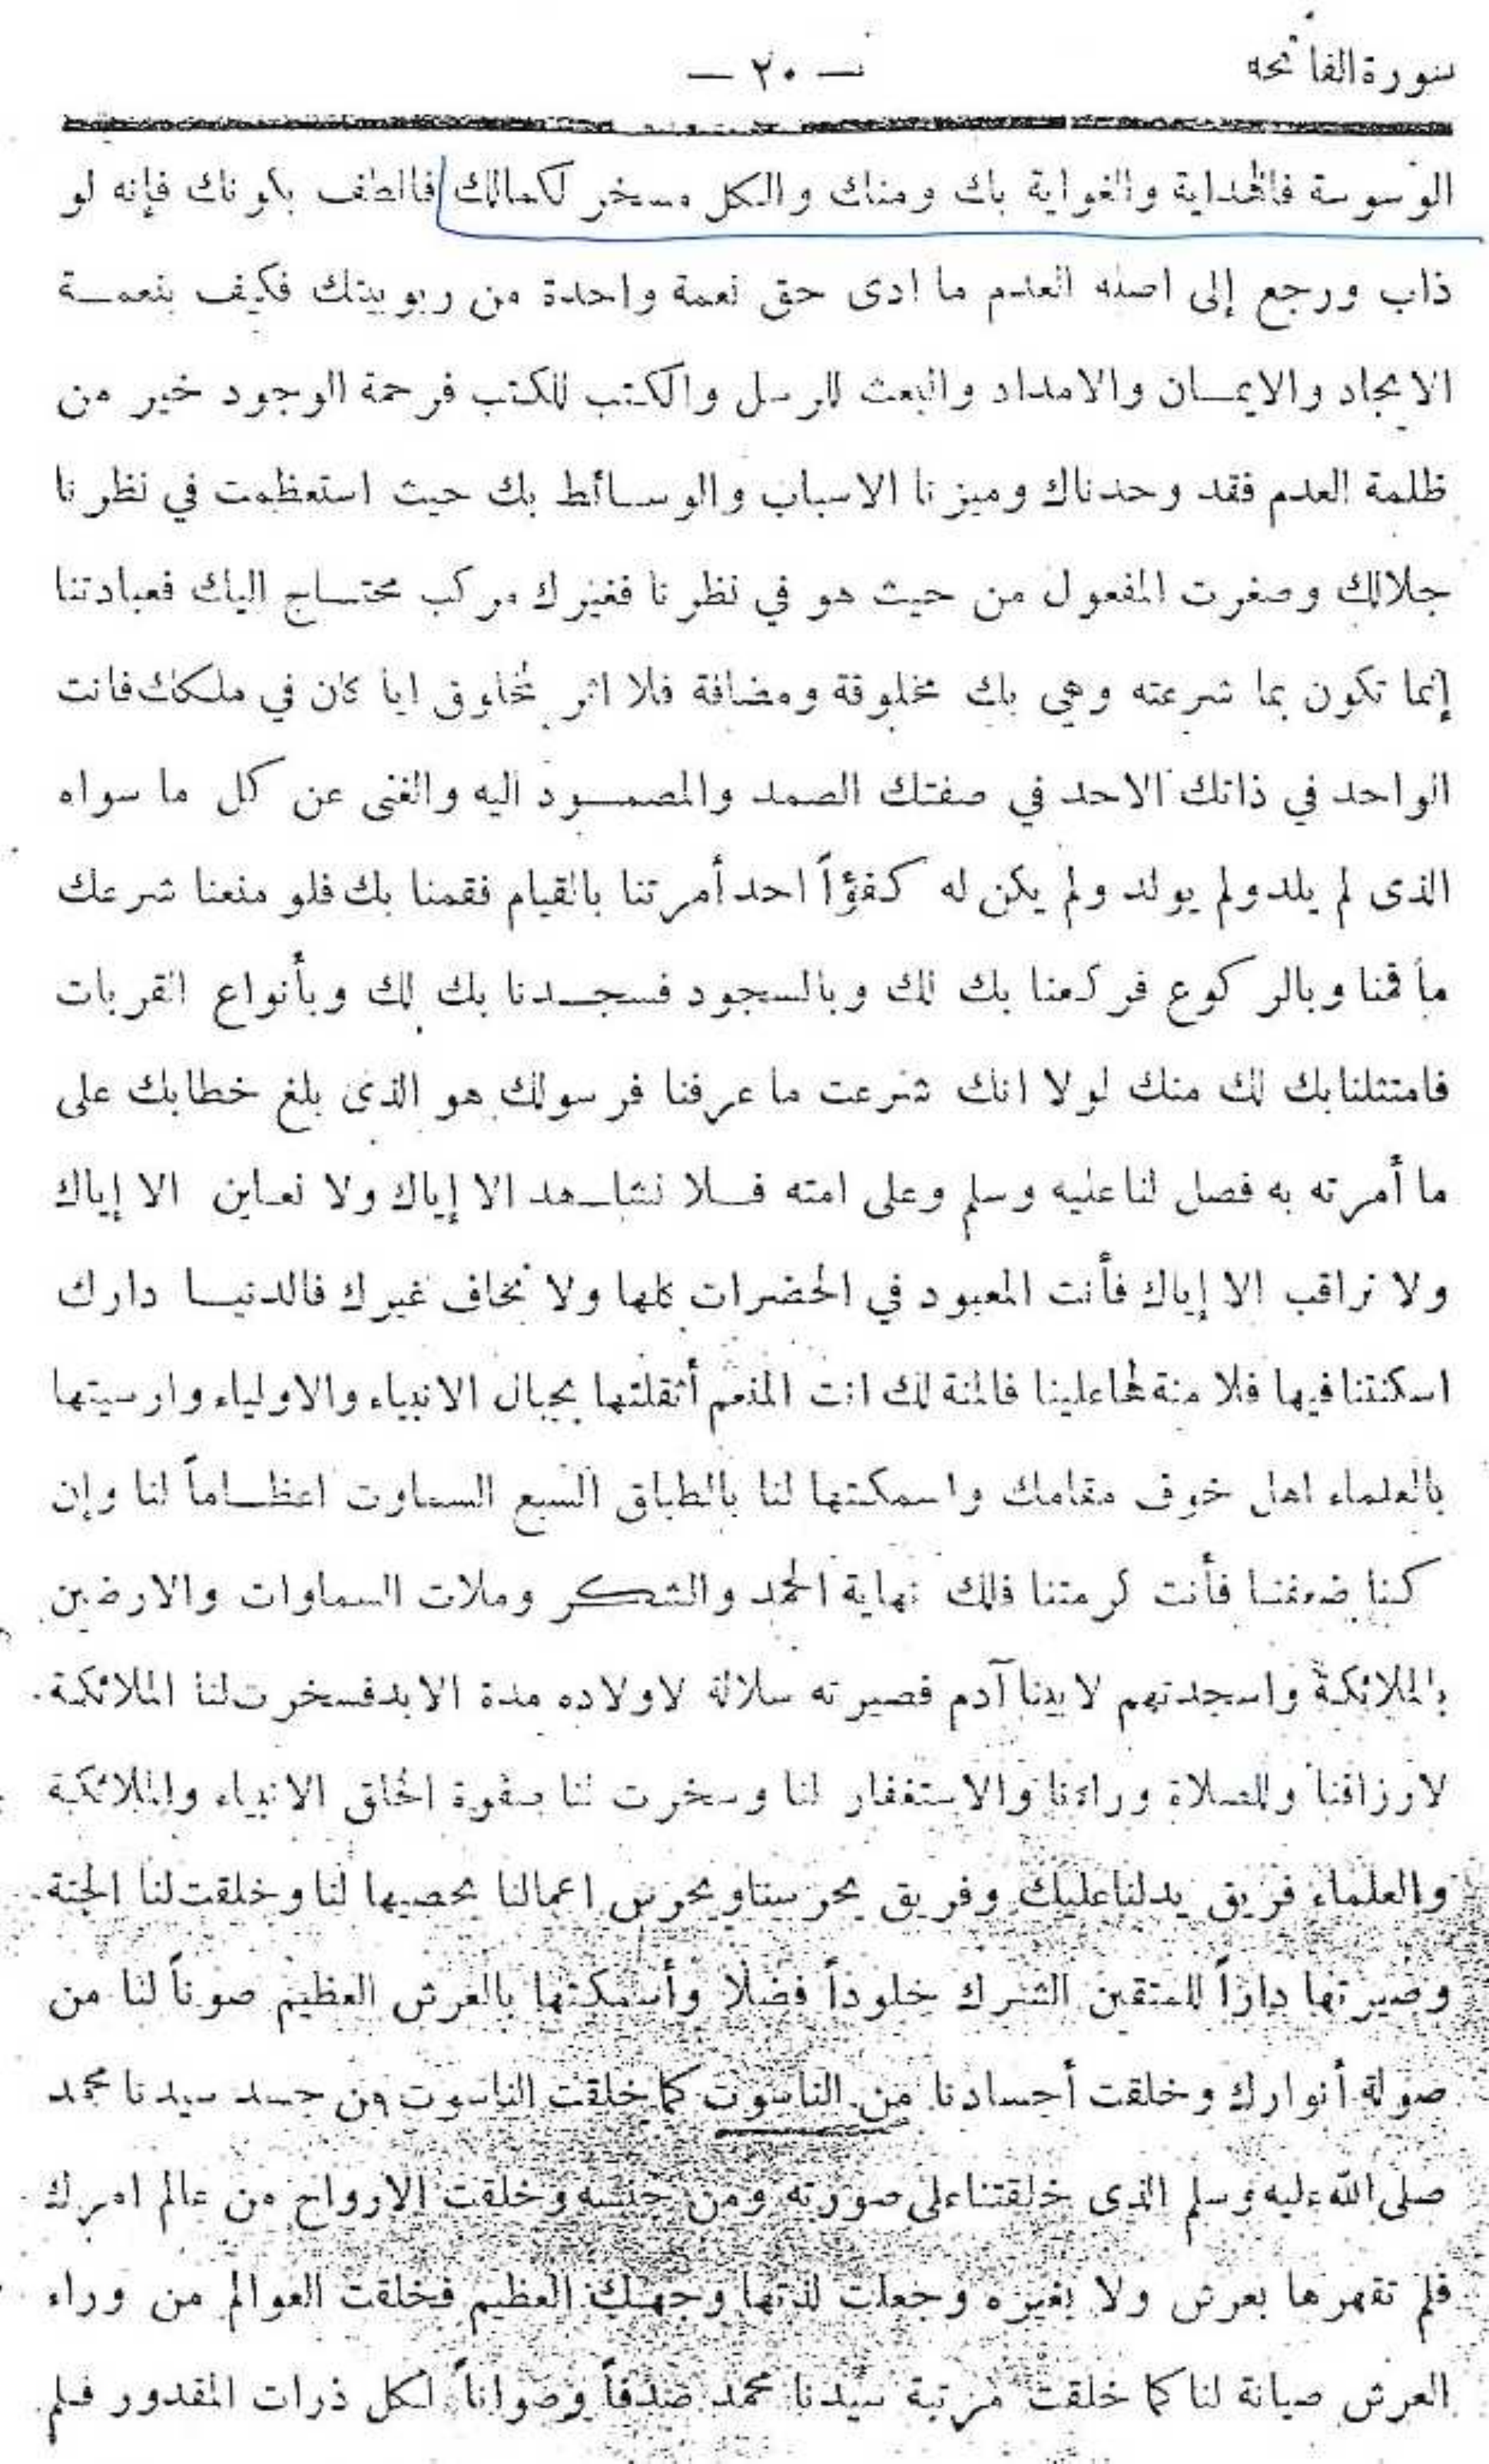 سورة الفاتحه
— ٢٠ —
الوسوسة فالهداية والغواية بك ومنك والكل مسخر لكمالك فالطف بكونك فإنه لو
ذاب ورجع إلى اصله العدم ما ادى حق نعمة واحدة من ربوبيتك فكيف بنعمـــة
الايجاد والايمــان والامداد والبعث للرسل والكتب للكتب فرحمة الوجود خير من
ظلمة العدم فقد وحدناك وميزنا الاسباب والوســائط بك حيث استعظمت في نظرنا
جلالك وصغرت المفعول من حيث هو في نظرنا فغيرك مركب محتــاج اليك فعبادتنا
إنما تكون بما شرعته وهى بك مخلوقة ومضافة فلا اثر لمخلوق ايا كان في ملكك فانت
الواحد في ذاتك الاحد في صفتك الصمد والمصمـــود اليه والغنى عن كل ما سواه
الذى لم يلد ولم يولد ولم يكن له كفؤاً احد أمرتنا بالقيام فقمنا بك فلو منعنا شرعك
ما قمنا وبالركوع فركعنا بك لك وبالسجود فسجــدنا بك لك وبأنواع القربات
فامتثلنا بك لك منك لولا انك شرعت ما عرفنا فرسولك هو الذى بلغ خطابك على
ما أمرته به فصل لنا عليه وسلم وعلى امته فــلا نشاــهد الا إياك ولا نعــاين الا إياك
ولا نراقب الا إياك فأنت المعبود في الحضرات كلها ولا نخاف غيرك فالدنيــا دارك
اسكنتنا فيها فلا منة لها علينا فالمنة لك انت المنعم أثقلتها بجبال الانبياء والاولياء وارسيتها
بالعلماء اهل خوف مقامك واسمكتها لنا بالطباق السبع السماوت اعظــاماً لنا وإن
كنا ضعفنــا فأنت كرمتنا فلك نهاية الحمد والشكــر وملات السماوات والارضين
بالملائكة واسجدتهم لابينا آدم فصيرته سلالة لاولاده مدة الابد فسخرت لنا الملائكة
لارزاقنا وللصلاة وراءنا والاستغفار لنا وسخرت لنا صفوة الخلق الانبياء والملائكة
والعلماء فريق يدلنا عليك وفريق يحرسنا ويحرس اعمالنا يحصيها لنا وخلقت لنا الجنة
وصيرتها داراً للمتقين الشرك خلوداً فضلا وأسمكتها بالعرش العظيم صوناً لنا من
صولة أنوارك وخلقت أجسادنا من الناسوت كما خلقت الناسوت من جسد سيدنا محمد
صلى الله عليه وسلم الذى خلقتنا على صورته ومن جنسه وخلقت الارواح من عالم امرك
فلم تقهرها بعرش ولا بغيره وجعلت لذتها وجهك العظيم فخلقت العوالم من وراء
العرش صيانة لنا كما خلقت مرتبة سيدنا محمد صدفاً وصواناً لكل ذرات المقدور فلم